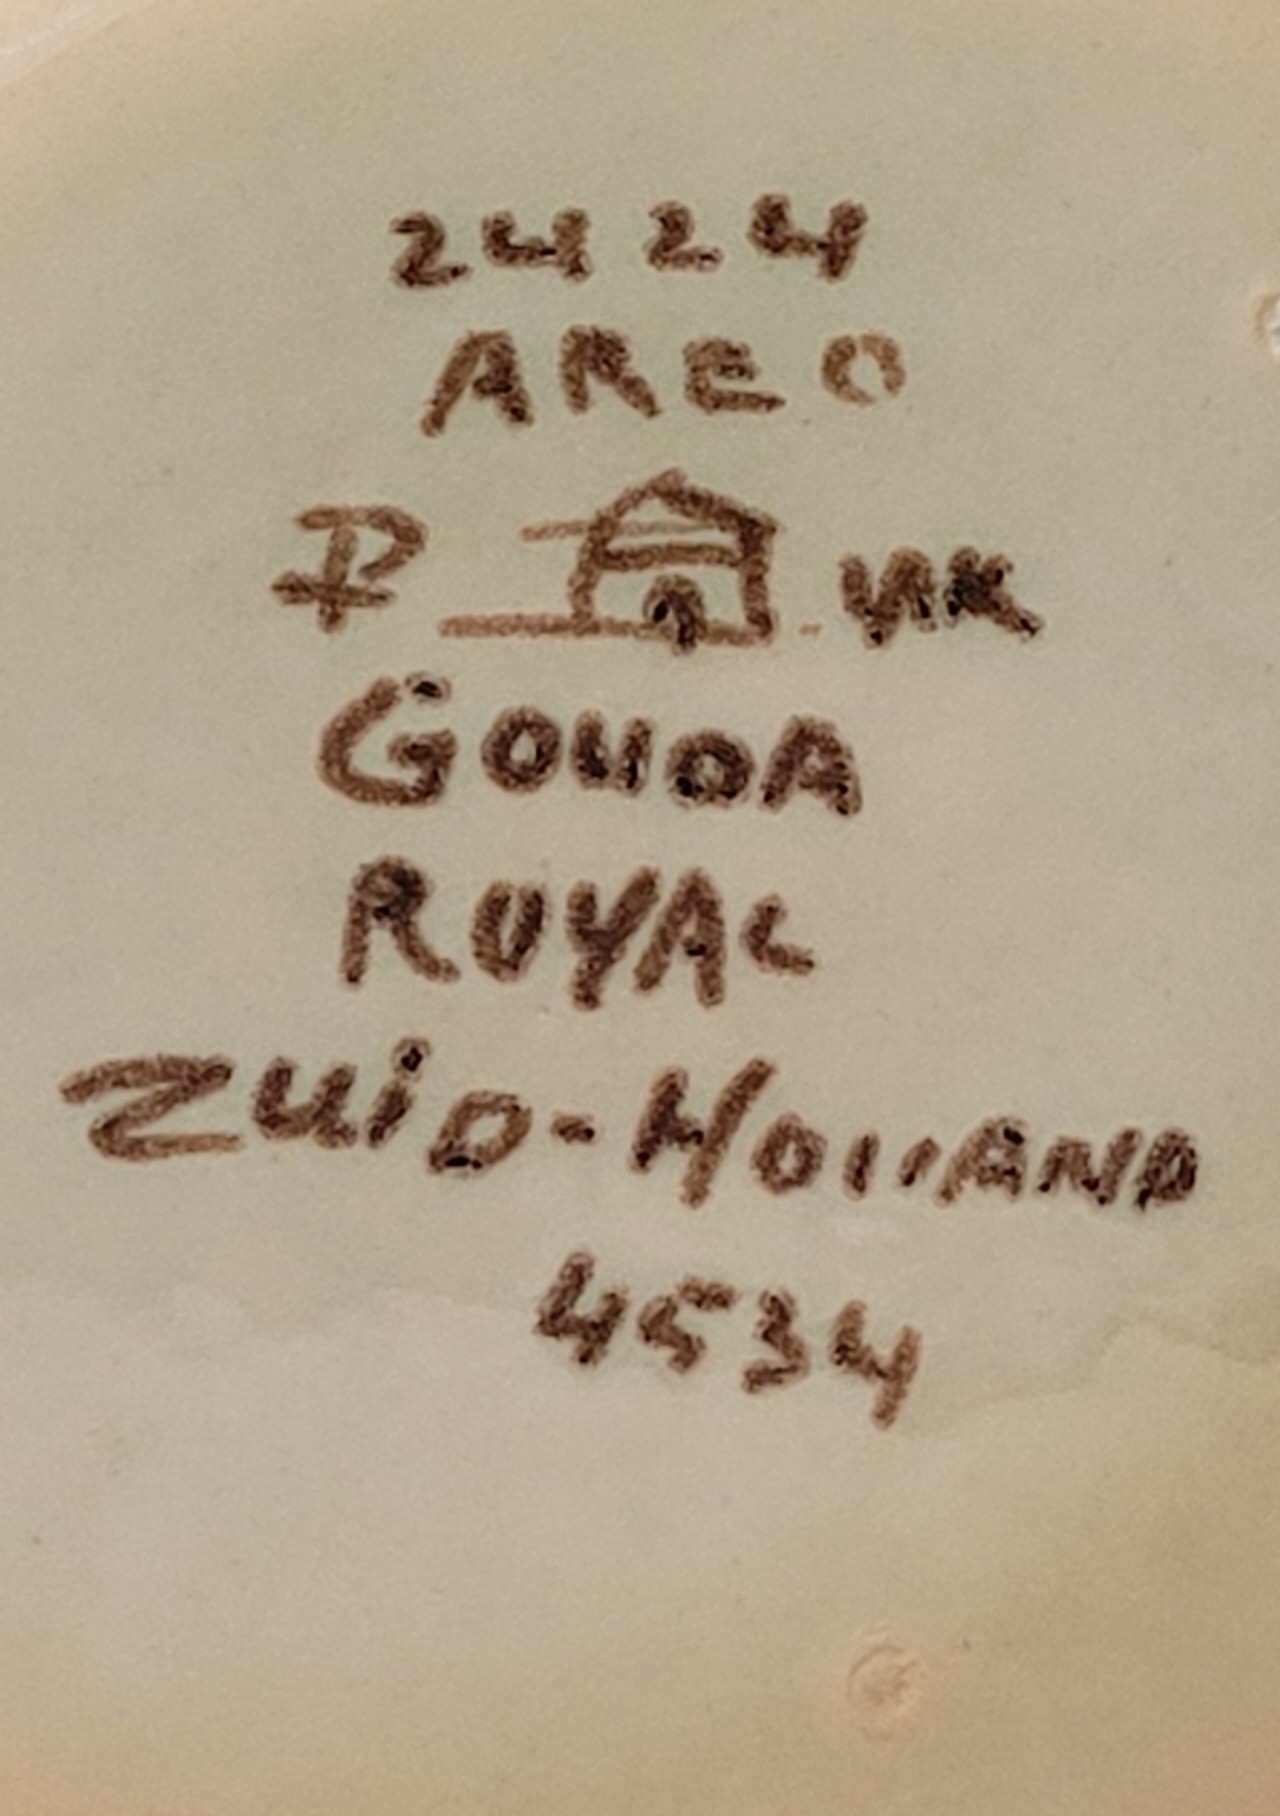 2424
AREO
NK
GOUDA
ROYAL
ZUiD-HOllAND
4534